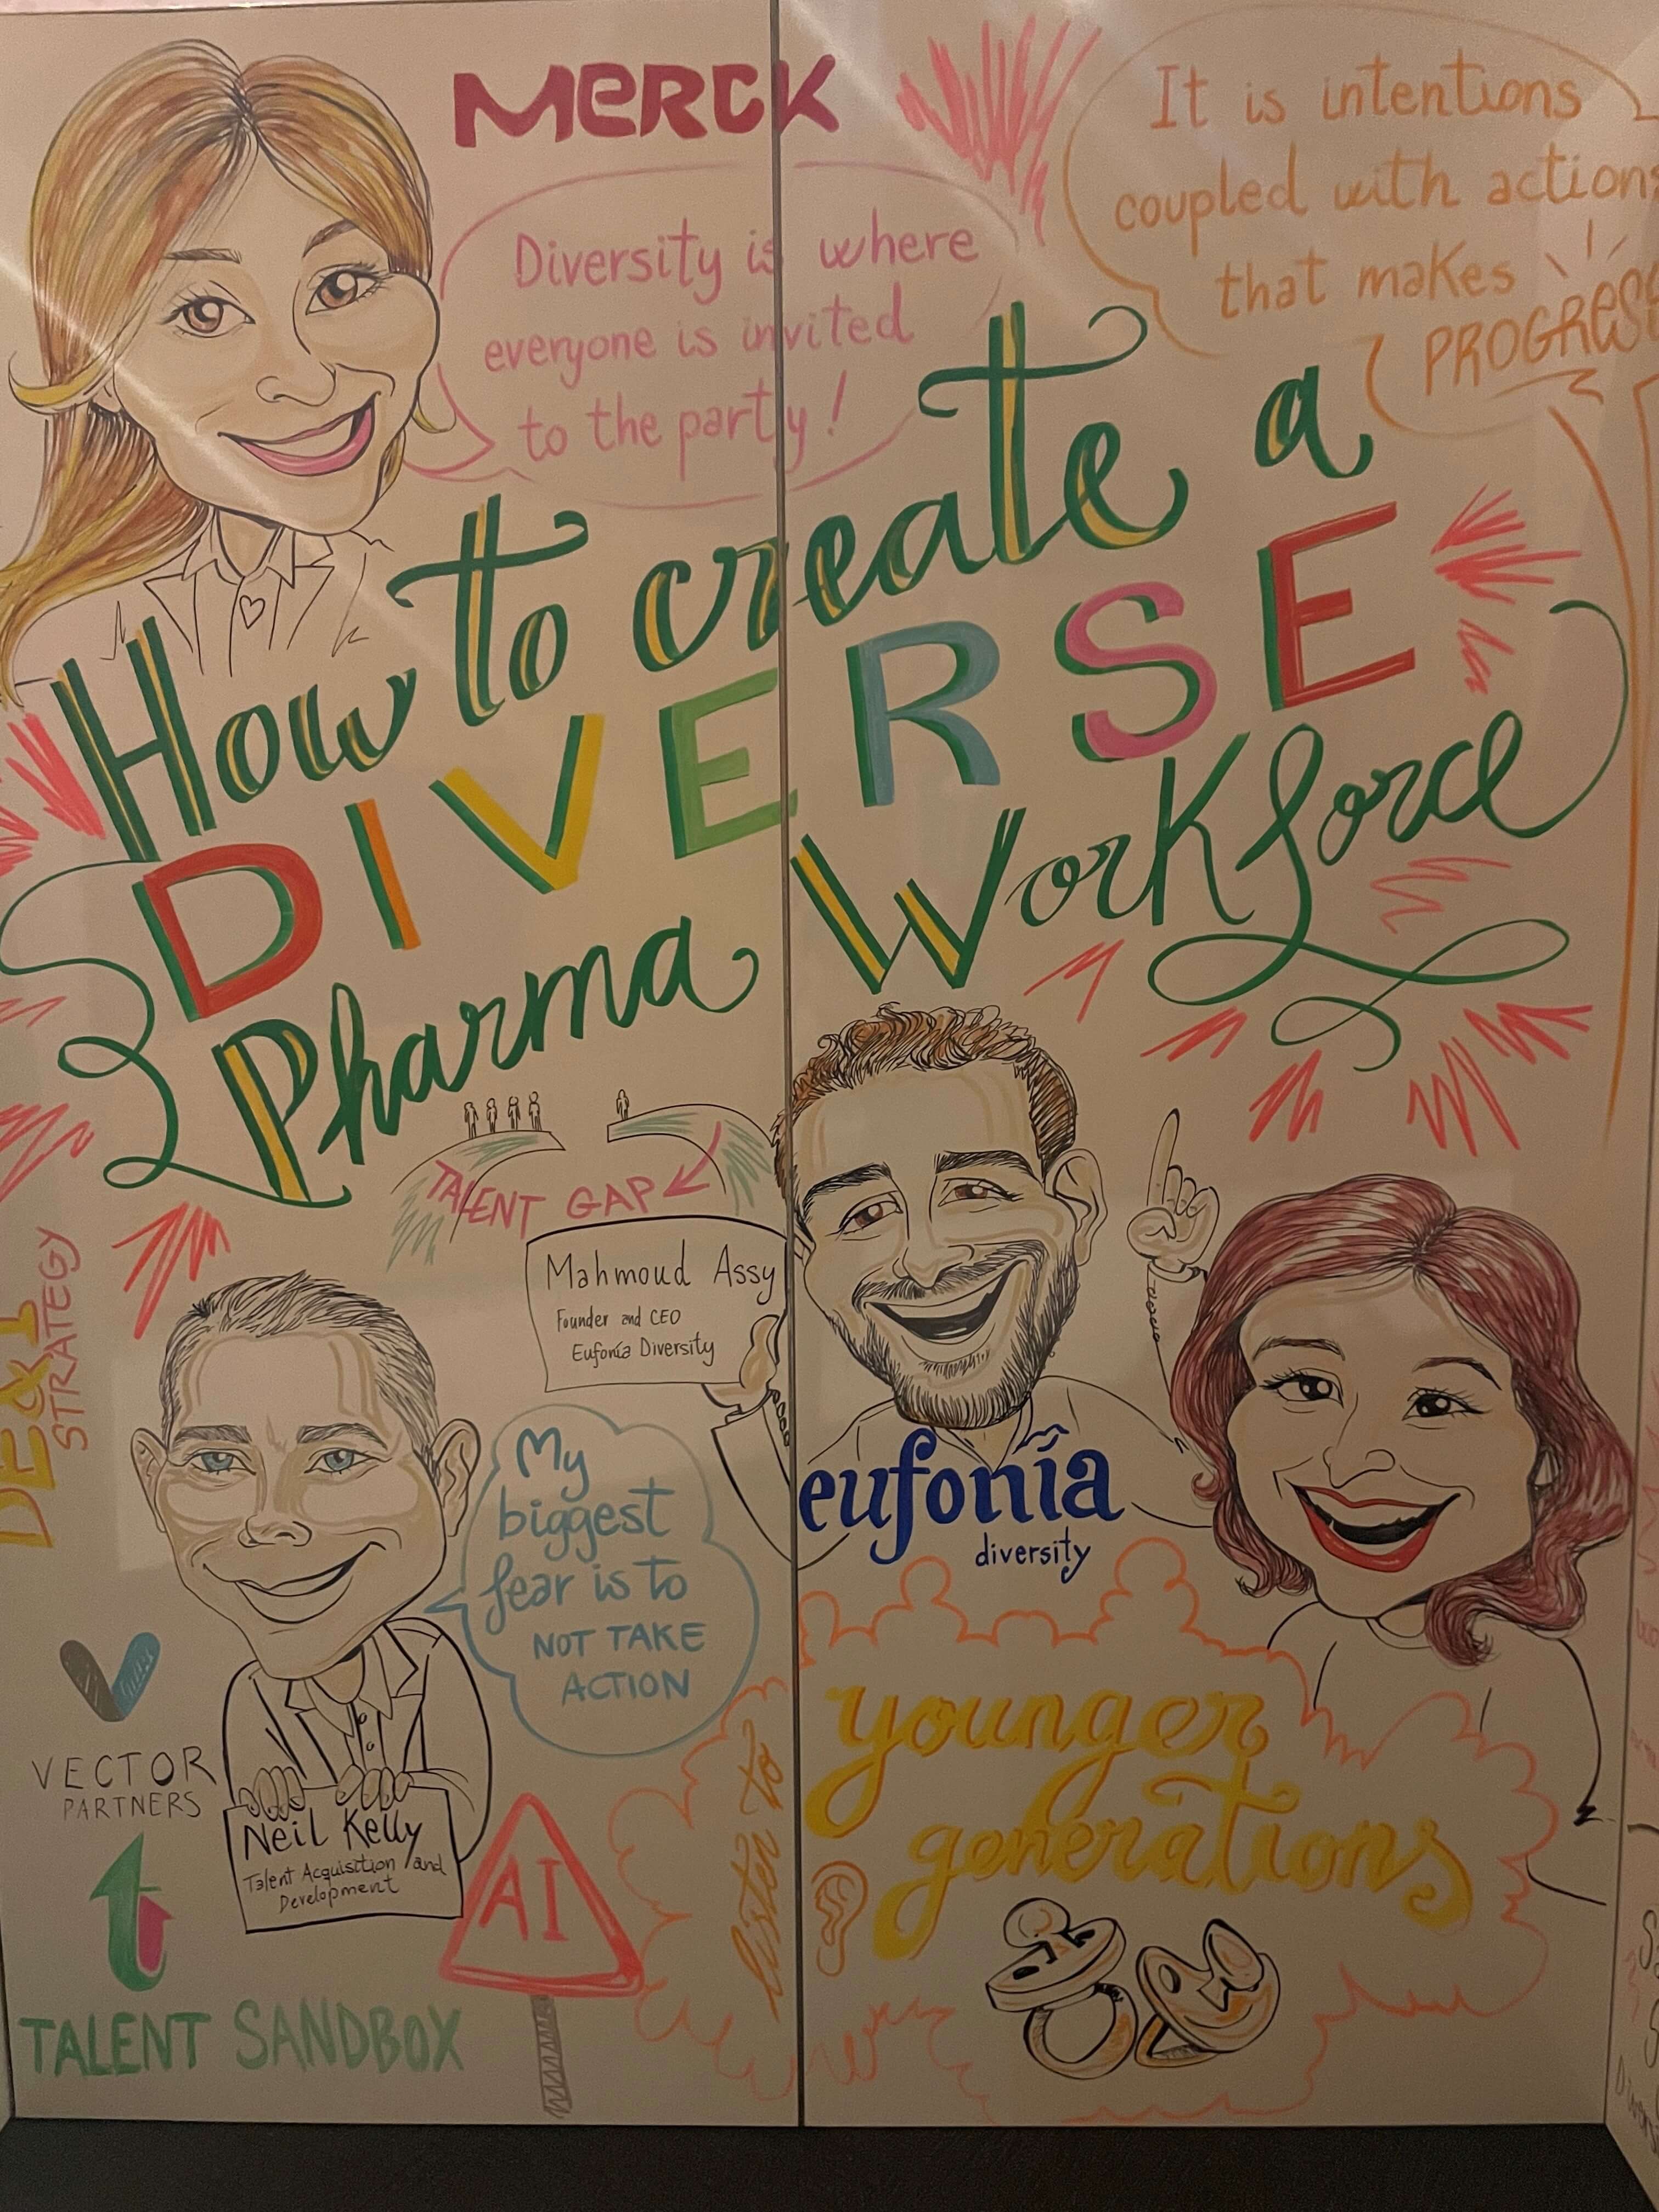 MERCK
Diversity is where
everyone is invited
to the party!
It is intentions
coupled with actions
that makes
PROGRESS
How to create a
DIVERSE
Pharma Workforce
TALENT GAP
Mahmoud Assy
Founder and CEO
Eufonía Diversity
DE&I
STRATEGY
My
biggest
fear is to
NOT TAKE
ACTION
eufonía
diversity
VECTOR
PARTNERS
Neil Kelly
Talent Acquisition and
Development
t
TALENT SANDBOX
AI
listen to
younger
generations